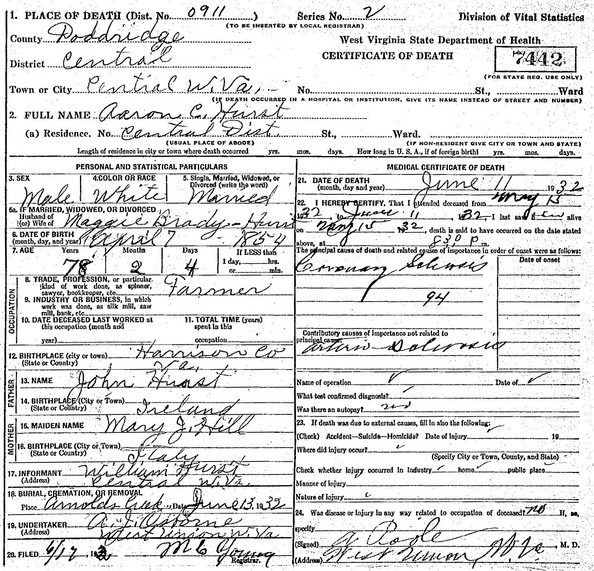 1. PLACE OF DEATH (Dist. No. 0911 ) Series No. 2 Division of Vital Statistics
(TO BE INSERTED BY LOCAL REGISTRAR)
County Doddridge West Virginia State Department of Health
District Central CERTIFICATE OF DEATH 7442
(FOR STATE REG. USE ONLY)
Town or City Central W. Va. No. St., Ward
(IF DEATH OCCURRED IN A HOSPITAL OR INSTITUTION, GIVE ITS NAME INSTEAD OF STREET AND NUMBER)
2. FULL NAME Aaron C. Hurst
(a) Residence. No. Central Dist. St., Ward.
(USUAL PLACE OF ABODE) (IF NON-RESIDENT GIVE CITY OR TOWN AND STATE)
Length of residence in city or town where death occurred yrs. mos. ds. How long in U. S. A., if of foreign birth? yrs. mos. ds.
PERSONAL AND STATISTICAL PARTICULARS
3. SEX 4. COLOR OR RACE 5. Single, Married, Widowed, or Divorced (write the word)
Male White Married
5a. IF MARRIED, WIDOWED, OR DIVORCED
Husband of
(or) Wife of Maggie Brady - Hurst
6. DATE OF BIRTH
(month, day, and year) April 7 1854
7. AGE Years Months Days IF LESS than
78 2 4 1 day, hrs.
or min.
OCCUPATION
8. TRADE, PROFESSION, or particular
kind of work done, as spinner,
sawyer, bookkeeper, etc. Farmer
9. INDUSTRY OR BUSINESS, in which
work was done, as silk mill, saw
mill, bank, etc.
10. DATE DECEASED LAST WORKED at
this occupation (month and
year)
11. TOTAL TIME (years)
spent in this
occupation
12. BIRTHPLACE (city or town) Harrison Co
(State or Country) Va.
FATHER
13. NAME John Hurst
14. BIRTHPLACE (City or Town)
(State or Country) Ireland
MOTHER
15. MAIDEN NAME Mary J. Hill
16. BIRTHPLACE (City or Town)
(State or Country) Italy
17. INFORMANT William Hurst
(Address) Central W.Va.
18. BURIAL, CREMATION, OR REMOVAL
Place Arnolds Creek Date June 13, 1932
19. UNDERTAKER A. J. Osborne
(Address) West Union W.Va
20. FILED 6/17 193 M C Young
Registrar.
MEDICAL CERTIFICATE OF DEATH
21. DATE OF DEATH
(month, day and year) June 11 1932
22. I HEREBY CERTIFY, That I attended deceased from May 15
1932 to June 11 1932, I last saw alive
on May 15 1932, death is said to have occurred on the date stated
above, at 830 p m.
The principal cause of death and related causes of importance in order of onset were as follows:
Date of onset
94
Contributory causes of importance not related to
principal cause:
Name of operation Date of
What test confirmed diagnosis?
Was there an autopsy? no
23. If death was due to external causes, fill in also the following:
(Check) Accident—Suicide—Homicide? Date of injury 19
Where did injury occur?
(Specify City or Town, County, and State)
Check whether injury occurred in Industry home public place
Manner of Injury
Nature of Injury
24. Was disease or injury in any way related to occupation of deceased? no If so,
specify
(Signed) A Poole M. D.
(Address) West Union, W.Va